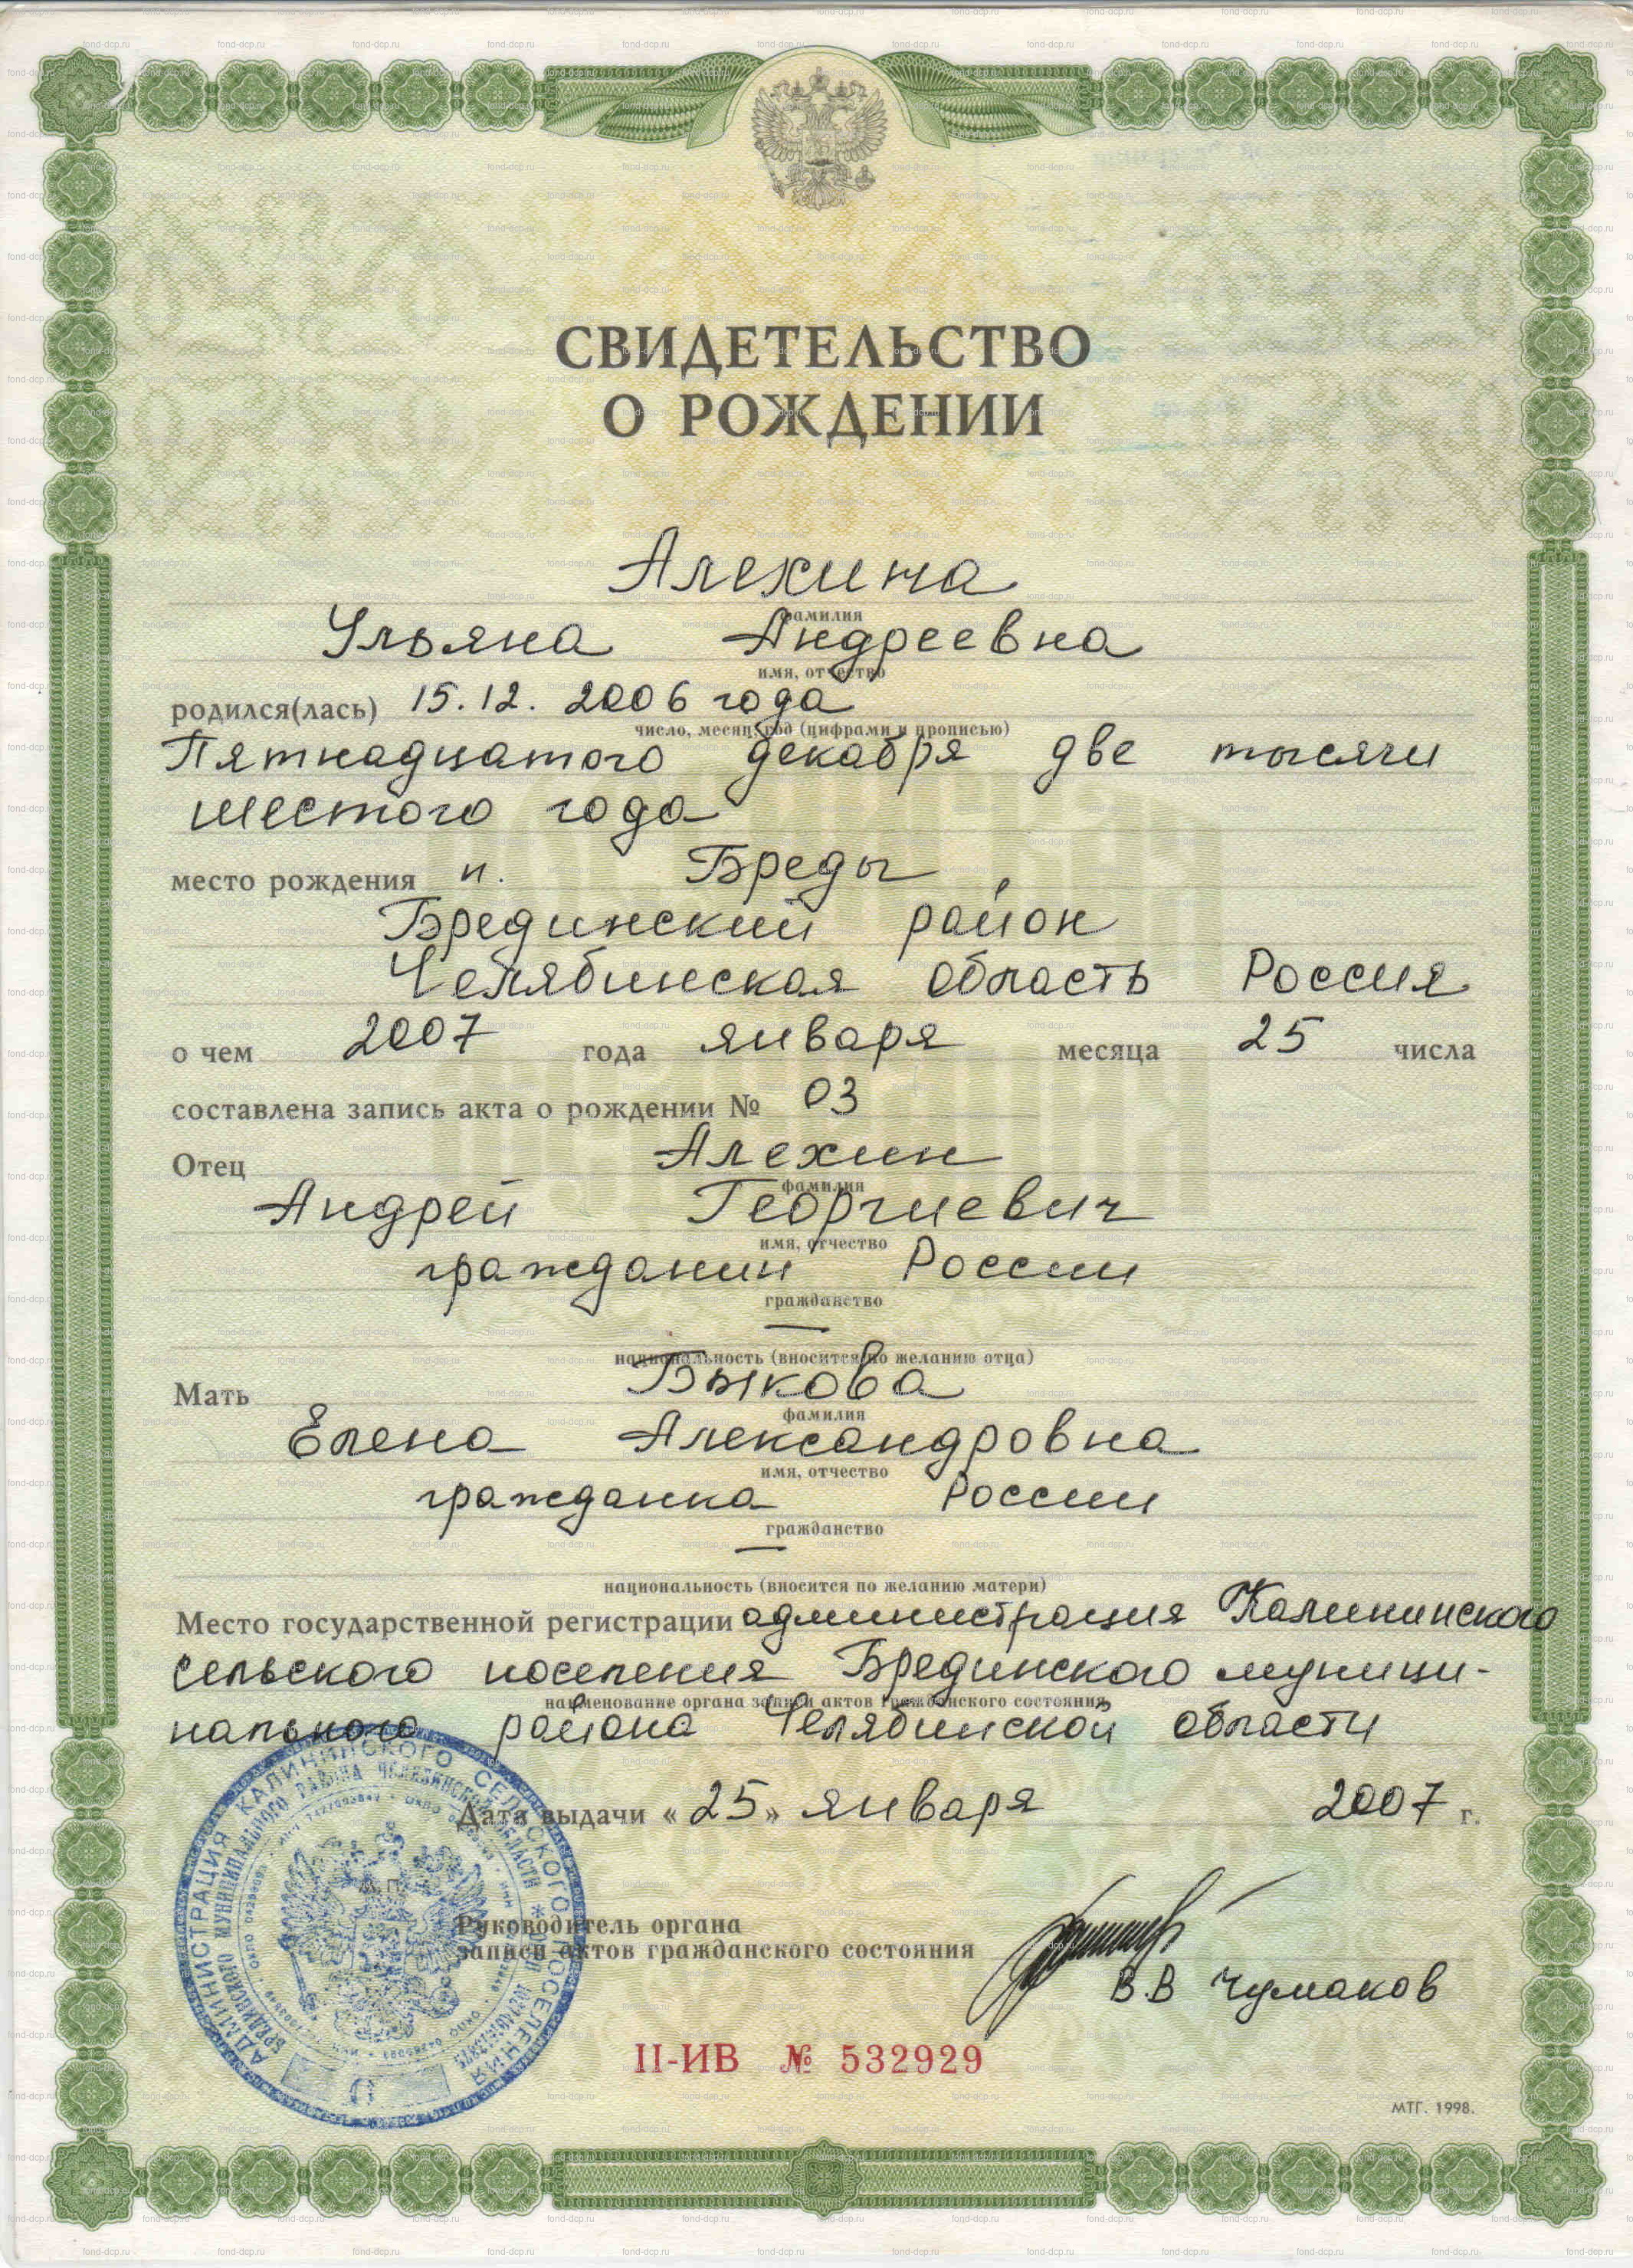 СВИДЕТЕЛЬСТВО
О РОЖДЕНИИ
Алехина
фамилия
Ульяна Андреевна
имя, отчество
родился(лась) 15.12.2006 года
число, месяц, год (цифрами и прописью)
Пятнадцатого декабря две тысячи
шестого года
место рождения п. Бреды,
Брединский район
Челябинская область Россия
о чем 2007 года января месяца 25 числа
составлена запись акта о рождении № 03
Отец Алехин
фамилия
Андрей Георгиевич
имя, отчество
гражданин России
гражданство
—
национальность (вносится по желанию отца)
Мать Быкова
фамилия
Елена Александровна
имя, отчество
гражданка России
гражданство
—
национальность (вносится по желанию матери)
Место государственной регистрации администрация Калининского
сельского поселения Брединского муници-
наименование органа записи актов гражданского состояния
пального района Челябинской области
Дата выдачи «25» января 2007 г.
М.П.
Руководитель органа
записи актов гражданского состояния
В.В Чумаков
II-ИВ № 532929
МТГ. 1998.
АДМИНИСТРАЦИЯ КАЛИНИНСКОГО СЕЛЬСКОГО ПОСЕЛЕНИЯ
БРЕДИНСКОГО МУНИЦИПАЛЬНОГО РАЙОНА ЧЕЛЯБИНСКОЙ ОБЛАСТИ
fond-dcp.ru